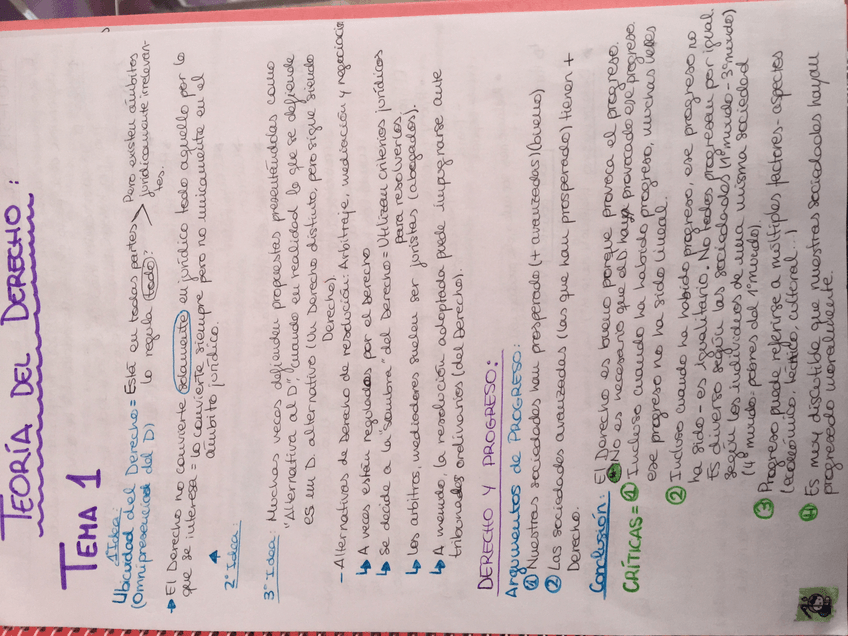 TEORÍA DEL DERECHO:
TEMA 1
1 Idea:
Ubicuidad del Derecho = Está en todas partes → Pero existen ámbitos
(Omnipresencia del D) lo regula todo? jurídicamente irrelevan-
tes.
→ El Derecho no convierte solamente en jurídico todo aquello por lo
que se interesa = lo convierte siempre pero no unicamente en el
ámbito jurídico.
2º Idea:
3º Idea: Muchas veces defienden propuestas presentándolas como
"Alternativa al D", cuando en realidad lo que se defiende
es un D. alternativo (Un Derecho distinto, pero sigue siendo
Derecho).
- Alternativas de Derecho de resolución: Arbitraje, mediación y negociación
↳ A veces están reguladas por el Derecho
↳ Se decide a la "Sombra" del Derecho = Utilizan criterios jurídicos
para resolverlos.
↳ Los arbitros, mediadores suelen ser juristas (abogados).
↳ A menudo, la resolución adoptada puede impugnarse ante
tribunales ordinarios (del Derecho).
DERECHO Y PROGRESO:
Argumentos de PROGRESO:
① Nuestras sociedades han prosperado (+ avanzadas) (bueno)
② Las sociedades avanzadas (las que han prosperado) tienen +
Derecho.
Conclusión: El Derecho es bueno porque provoca el progreso.
No es necesario que el D haya provocado ese progreso.
CRÍTICAS = ① Incluso cuando ha habido progreso, muchas veces
ese progreso no ha sido lineal.
② Incluso cuando ha habido progreso, ese progreso no
ha sido - es igualitario. No todos progresan por igual.
Es diverso según las sociedades (1º mundo - 3º mundo)
según los individuos de una misma sociedad
(4º mundo: pobres del 1º mundo).
③ Progreso puede referirse a múltiples factores - aspectos
(económico, técnico, cultural...)
④ Es muy discutible que nuestras sociedades hayan
progresado moralmente.